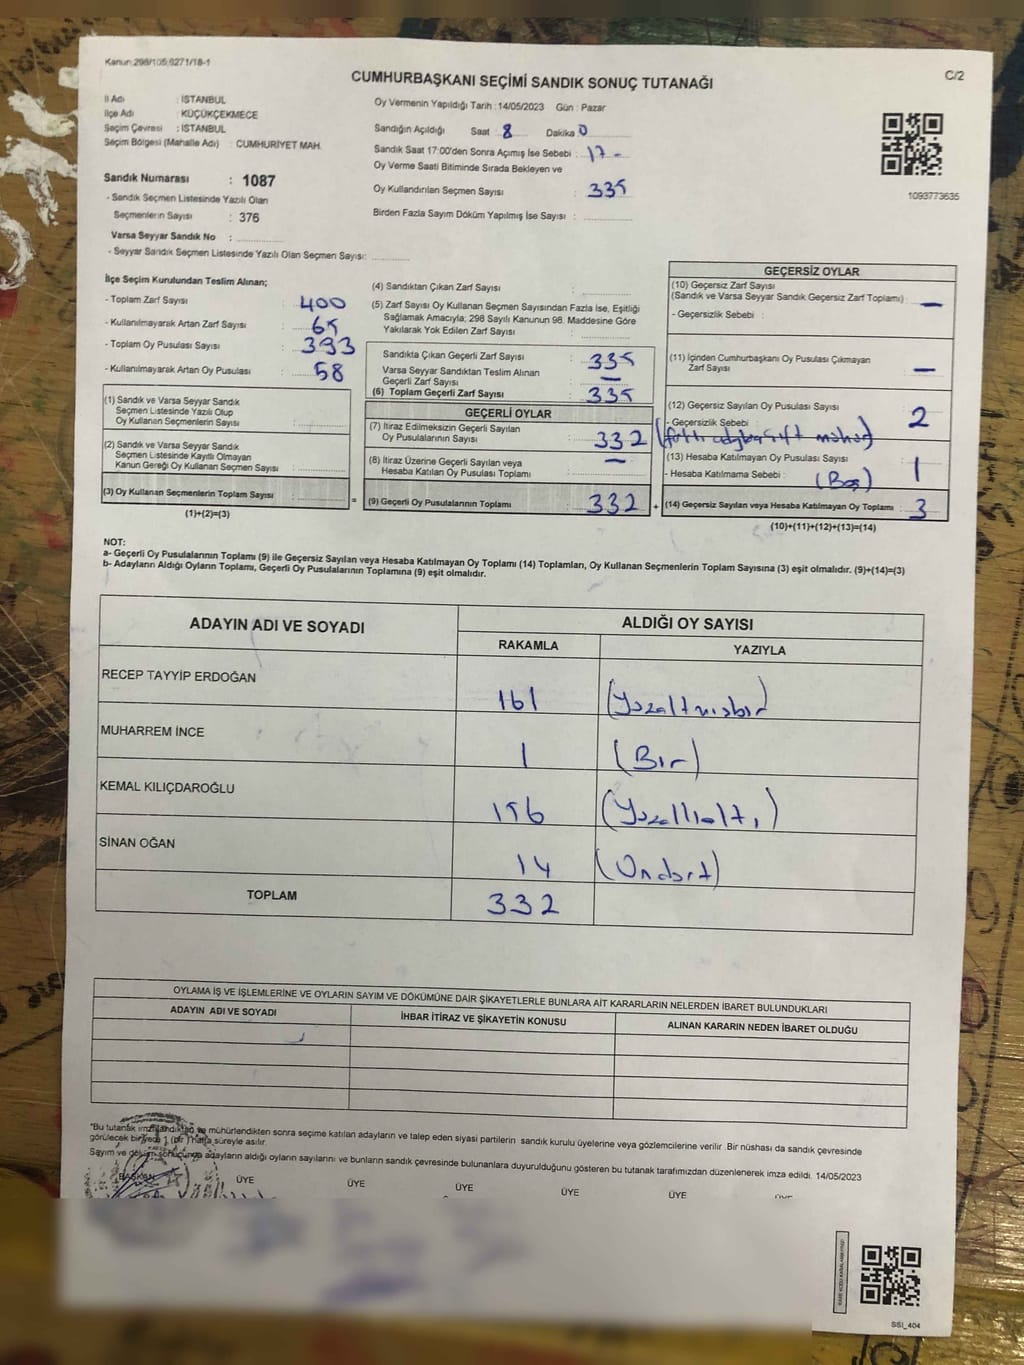 Kanun:298/105,6271/18-1
C/2
CUMHURBAŞKANI SEÇİMİ SANDIK SONUÇ TUTANAĞI
İl Adı : İSTANBUL
İlçe Adı : KÜÇÜKÇEKMECE
Seçim Çevresi : İSTANBUL
Seçim Bölgesi (Mahalle Adı) : CUMHURİYET MAH.
Sandık Numarası : 1087
- Sandık Seçmen Listesinde Yazılı Olan
Seçmenlerin Sayısı : 376
Varsa Seyyar Sandık No :
- Seyyar Sandık Seçmen Listesinde Yazılı Olan Seçmen Sayısı:
Oy Vermenin Yapıldığı Tarih :14/05/2023 Gün : Pazar
Sandığın Açıldığı Saat 8 Dakika 0
Sandık Saat 17:00'den Sonra Açımış İse Sebebi : 17-
Oy Verme Saati Bitiminde Sırada Bekleyen ve
Oy Kullandırılan Seçmen Sayısı : 335
Birden Fazla Sayım Döküm Yapılmış İse Sayısı :
1093773635
İlçe Seçim Kurulundan Teslim Alınan;
- Toplam Zarf Sayısı : 400
- Kullanılmayarak Artan Zarf Sayısı : 65
- Toplam Oy Pusulası Sayısı : 393
- Kullanılmayarak Artan Oy Pusulası : 58
(1) Sandık ve Varsa Seyyar Sandık
Seçmen Listesinde Yazılı Olup
Oy Kullanan Seçmenlerin Sayısı :
(2) Sandık ve Varsa Seyyar Sandık
Seçmen Listesinde Kayıtlı Olmayan
Kanun Gereği Oy Kullanan Seçmen Sayısı :
(3) Oy Kullanan Seçmenlerin Toplam Sayısı :
(1)+(2)=(3)
(4) Sandıktan Çıkan Zarf Sayısı :
(5) Zarf Sayısı Oy Kullanan Seçmen Sayısından Fazla İse, Eşitliği
Sağlamak Amacıyla; 298 Sayılı Kanunun 98. Maddesine Göre
Yakılarak Yok Edilen Zarf Sayısı :
Sandıkta Çıkan Geçerli Zarf Sayısı : 335
Varsa Seyyar Sandıktan Teslim Alınan
Geçerli Zarf Sayısı : —
(6) Toplam Geçerli Zarf Sayısı : 335
GEÇERLİ OYLAR
(7) İtiraz Edilmeksizin Geçerli Sayılan
Oy Pusulalarının Sayısı : 332
(8) İtiraz Üzerine Geçerli Sayılan veya
Hesaba Katılan Oy Pusulası Toplamı : —
= (9) Geçerli Oy Pusulalarının Toplamı : 332
GEÇERSİZ OYLAR
(10) Geçersiz Zarf Sayısı
(Sandık ve Varsa Seyyar Sandık Geçersiz Zarf Toplamı) : —
- Geçersizlik Sebebi :
(11) İçinden Cumhurbaşkanı Oy Pusulası Çıkmayan
Zarf Sayısı : —
(12) Geçersiz Sayılan Oy Pusulası Sayısı : 2
- Geçersizlik Sebebi :
(13) Hesaba Katılmayan Oy Pusulası Sayısı : 1
- Hesaba Katılmama Sebebi : (Boş)
+ (14) Geçersiz Sayılan veya Hesaba Katılmayan Oy Toplamı : 3
(10)+(11)+(12)+(13)=(14)
NOT:
a- Geçerli Oy Pusulalarının Toplamı (9) ile Geçersiz Sayılan veya Hesaba Katılmayan Oy Toplamı (14) Toplamları, Oy Kullanan Seçmenlerin Toplam Sayısına (3) eşit olmalıdır. (9)+(14)=(3)
b- Adayların Aldığı Oyların Toplamı, Geçerli Oy Pusulalarının Toplamına (9) eşit olmalıdır.
ADAYIN ADI VE SOYADI
ALDIĞI OY SAYISI
RAKAMLA YAZIYLA
RECEP TAYYİP ERDOĞAN 161 (Yüzaltmışbir)
MUHARREM İNCE 1 (Bir)
KEMAL KILIÇDAROĞLU 156 (Yüzellialtı)
SİNAN OĞAN 14 (Ondört)
TOPLAM 332
OYLAMA İŞ VE İŞLEMLERİNE VE OYLARIN SAYIM VE DÖKÜMÜNE DAİR ŞİKAYETLERLE BUNLARA AİT KARARLARIN NELERDEN İBARET BULUNDUKLARI
ADAYIN ADI VE SOYADI İHBAR İTİRAZ VE ŞİKAYETİN KONUSU ALINAN KARARIN NEDEN İBARET OLDUĞU
"Bu tutanak imzalandıktan ve mühürlendikten sonra seçime katılan adayların ve talep eden siyasi partilerin sandık kurulu üyelerine veya gözlemcilerine verilir .Bir nüshası da sandık çevresinde
görülecek bir yere 1 (bir ) hafta süreyle asılır.
Sayım ve döküm sonucunda adayların aldığı oyların sayılarını ve bunların sandık çevresinde bulunanlara duyurulduğunu gösteren bu tutanak tarafımızdan düzenlenerek imza edildi. 14/05/2023
BAŞKAN ÜYE ÜYE ÜYE ÜYE ÜYE ÜYE
SSI_404